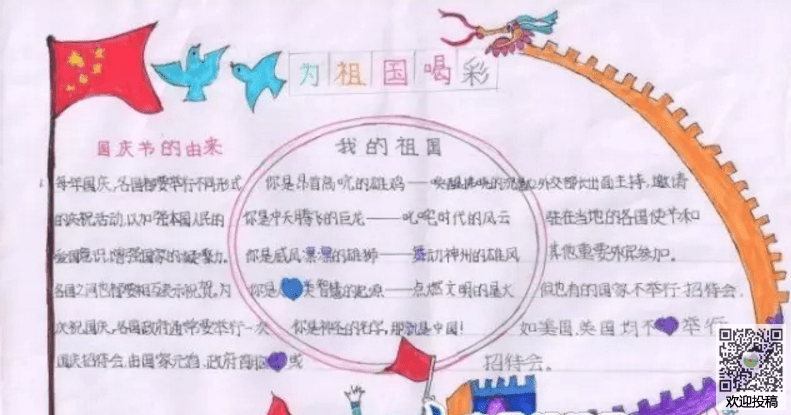 为祖国喝彩
国庆节的由来
每年国庆,各国都要举行不同形式
的庆祝活动,以加强本国人民的
爱国意识,增强国家的凝聚力。
各国之间也都要相互表示祝贺,为
庆祝国庆,各国政府通常要举行一次
国庆招待会,由国家元首、政府首脑或
我的祖国
你是昂首高吭的雄鸡——唤醒拂晓的沉默
你是冲天腾飞的巨龙——叱咤时代的风云
你是威风凛凛的雄狮——舞动神州的雄风
你是人类智慧的起源——点燃文明的星火
你是神圣的名字,那就是中国!
外交部长出面主持,邀请
驻在当地的各国使节和
其他重要外宾参加。
但也有的国家不举行招待会,
如美国、英国均不举行
招待会。
欢迎投稿